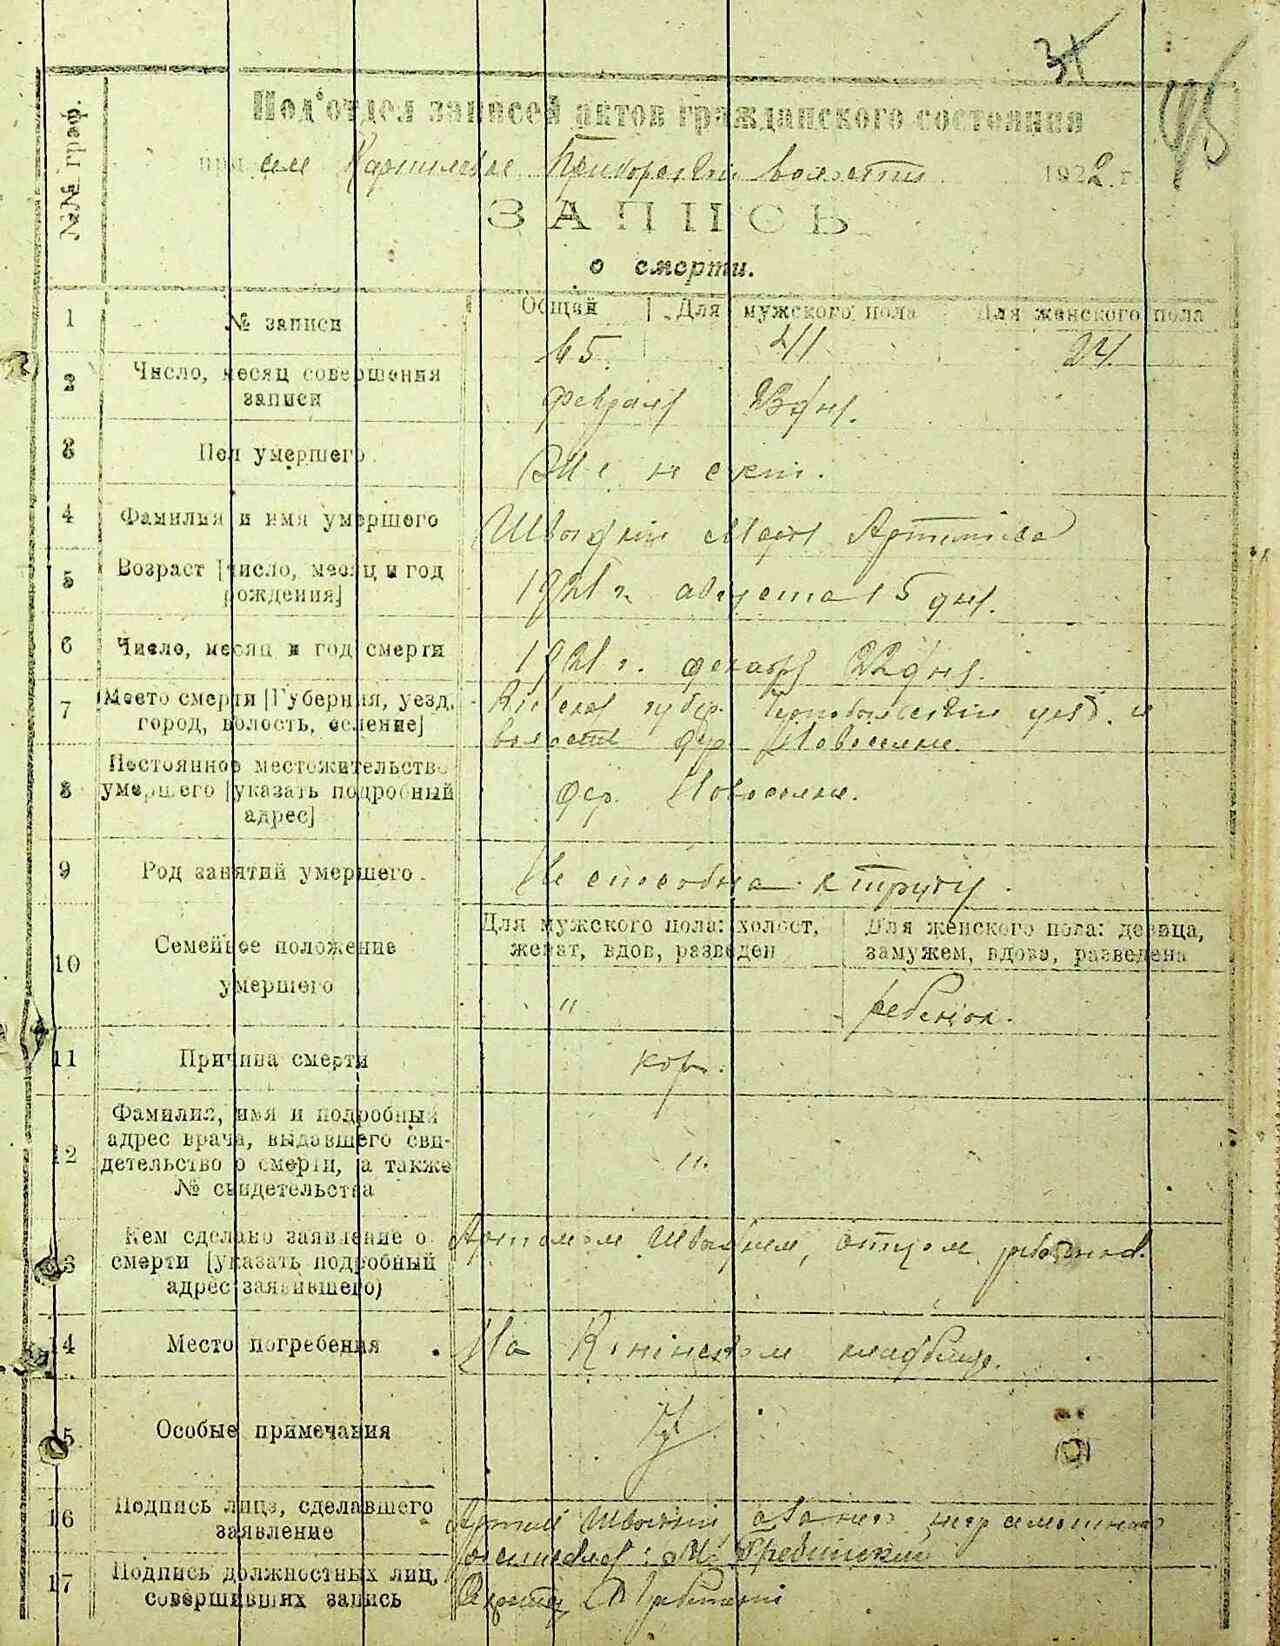 34
95
№№ граф.
Под'отдел записей актов гражданского состояния
при селе Карпиловке Приборской волости 1922 г.
ЗАПИСЬ
о смерти.
Общий Для мужского пола Для женского пола
1 № записи
65. 41 24.
2 Число, месяц совершения
записи
февраля 23 дня.
3 Пол умершего
Женский.
4 Фамилия и имя умершего
Мария
5 Возраст [число, месяц и год
рождения]
1921 г. августа 15 дня.
6 Число, месяц и год смерти
1921 г. декабря 22 дня.
7 Место смерти [Губерния, уезд,
город, волость, селение]
Киевская губер. Чернобыльский уезд. и
волости дер. Новоселки.
8 Постоянное местожительство
умершего [указать подробный
адрес]
дер. Новоселки.
9 Род занятий умершего.
Не способна к труду.
10 Семейное положение
умершего
Для мужского пола: холост,
женат, вдов, разведен
Для женского пола: девица,
замужем, вдова, разведена
" ребенок.
11 Причина смерти
корь.
12 Фамилия, имя и подробный
адрес врача, выдавшего сви-
детельство о смерти, а также
№ свидетельства
".
13 Кем сделано заявление о
смерти [указать подробный
адрес заявившего)
отцом
14 Место погребения
На кладбище.
15 Особые примечания
16 Подпись лица, сделавшего
заявление
а за него неграмотного
17 Подпись должностных лиц,
совершивших запись